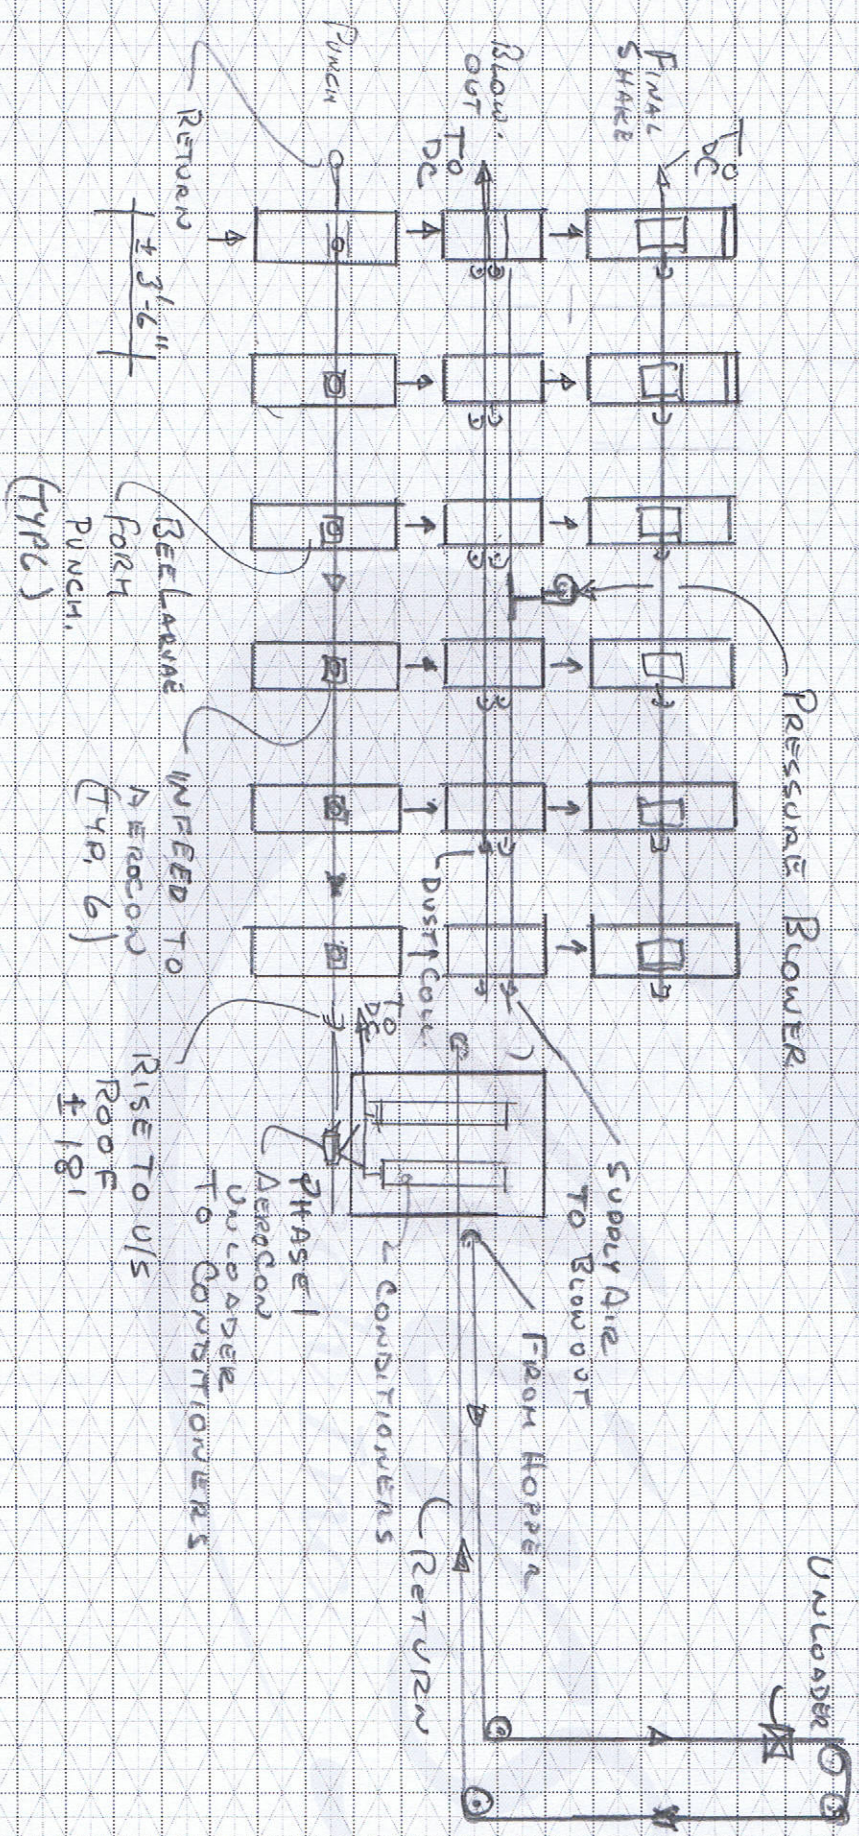 FINAL
SHAKE
TO
DC
BLOW.
OUT
TO
DC
PUNCH
RETURN
± 3'-6"
PRESSURE BLOWER
BEE LARVAE
FORM
PUNCH.
(TYP.6)
INFEED TO
AEROCON
(TYP. 6)
DUST COLL.
TO
DC
SUPPLY AIR
TO BLOWOUT
RISE TO U/S
ROOF
± 18'
PHASE 1
AEROCON
UNLOADER
TO CONDITIONERS
CONDITIONERS
FROM HOPPER
RETURN
UNLOADER